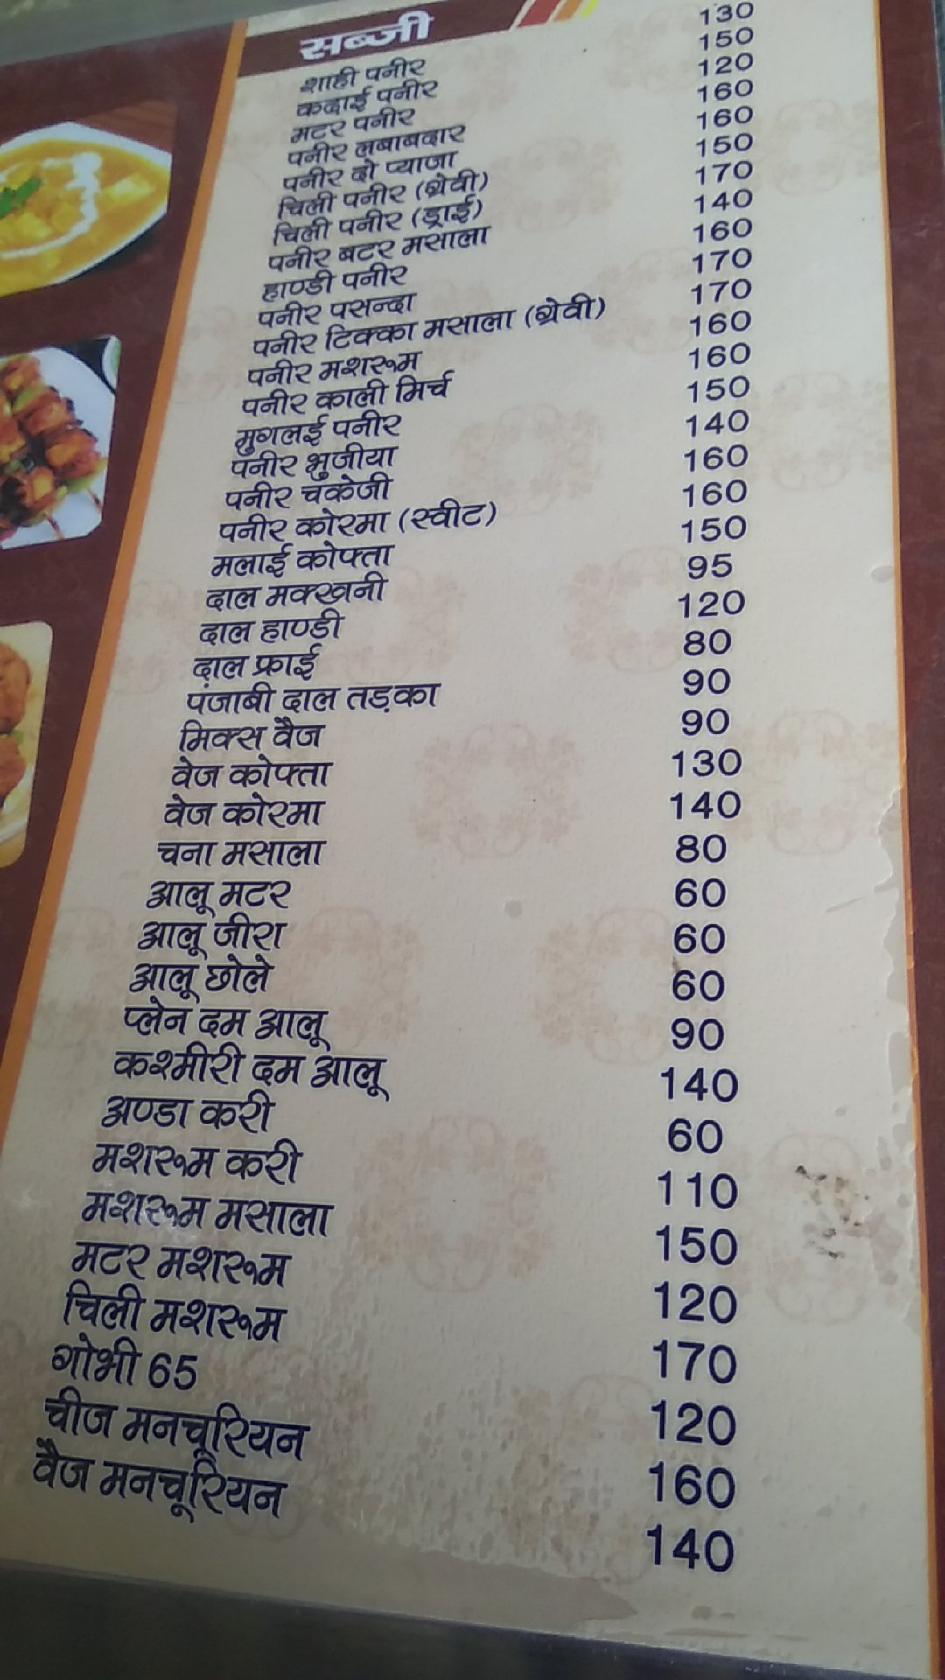 सब्जी
शाही पनीर 130
कढाई पनीर 150
मटर पनीर 120
पनीर लबाबदार 160
पनीर दो प्याजा 160
चिली पनीर (ग्रेवी) 150
चिली पनीर (ड्राई) 170
पनीर बटर मसाला 140
हाण्डी पनीर 160
पनीर पसन्दा 170
पनीर टिक्का मसाला (ग्रेवी) 170
पनीर मशरूम 160
पनीर काली मिर्च 160
मुगलई पनीर 150
पनीर भुजीया 140
पनीर चकेजी 160
पनीर कोरमा (स्वीट) 160
मलाई कोफ्ता 150
दाल मक्खनी 95
दाल हाण्डी 120
दाल फ्राई 80
पंजाबी दाल तड़का 90
मिक्स वैज 90
वेज कोफ्ता 130
वेज कोरमा 140
चना मसाला 80
आलू मटर 60
आलू जीरा 60
आलू छोले 60
प्लेन दम आलू 90
कश्मीरी दम आलू 140
अण्डा करी 60
मशरूम करी 110
मशरूम मसाला 150
मटर मशरूम 120
चिली मशरूम 170
गोभी 65 120
चीज मनचूरियन 160
वैज मनचूरियन 140